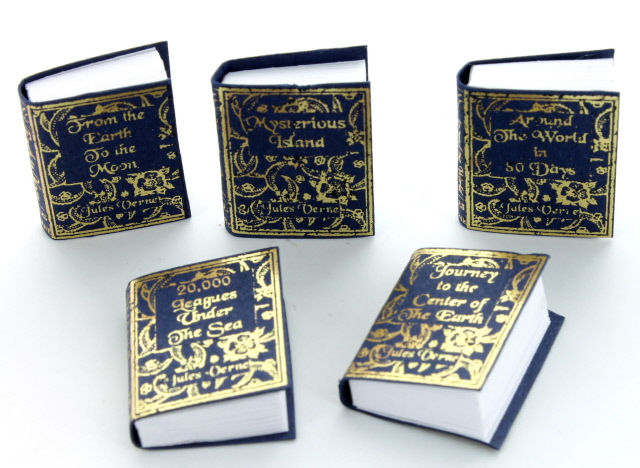 From the
Earth
To the
Moon
Jules Verne
Mysterious
Island
Jules Verne
Around
The World
in
80 Days
Jules Verne
20,000
Leagues
Under
The Sea
Jules Verne
Journey
to the
Center of
The Earth
Jules Verne